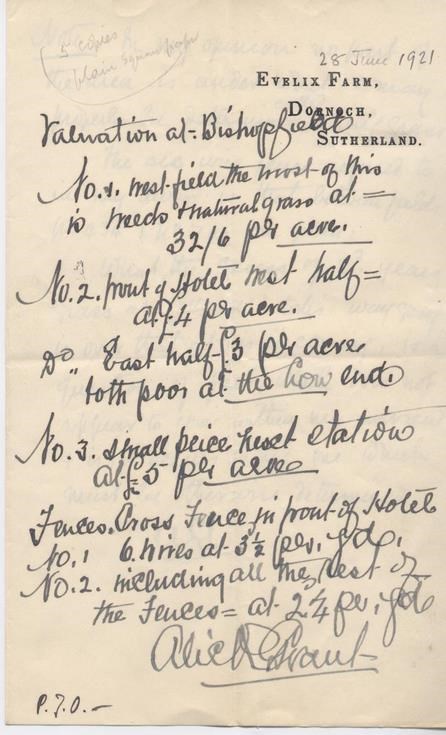 5 copies
plain square paper
28 June 1921
EVELIX FARM,
DORNOCH,
SUTHERLAND.
Valuation at = Bishopfield
No. 1. west field the most of this
is weeds & natural grass at =
32/6 per acre.
No. 2. front of Hotel West half =
at £4 per acre.
Do " East half = £3 per acre
both poor at the low end.
No. 3. small peice next station
at £5 per acre
Fences. Cross Fence in front of Hotel
No. 1 6 wires at 3½ per. yd.
No. 2. including all the rest of
the Fences = at 2¼ per. yd
Grant
P.T.O. -